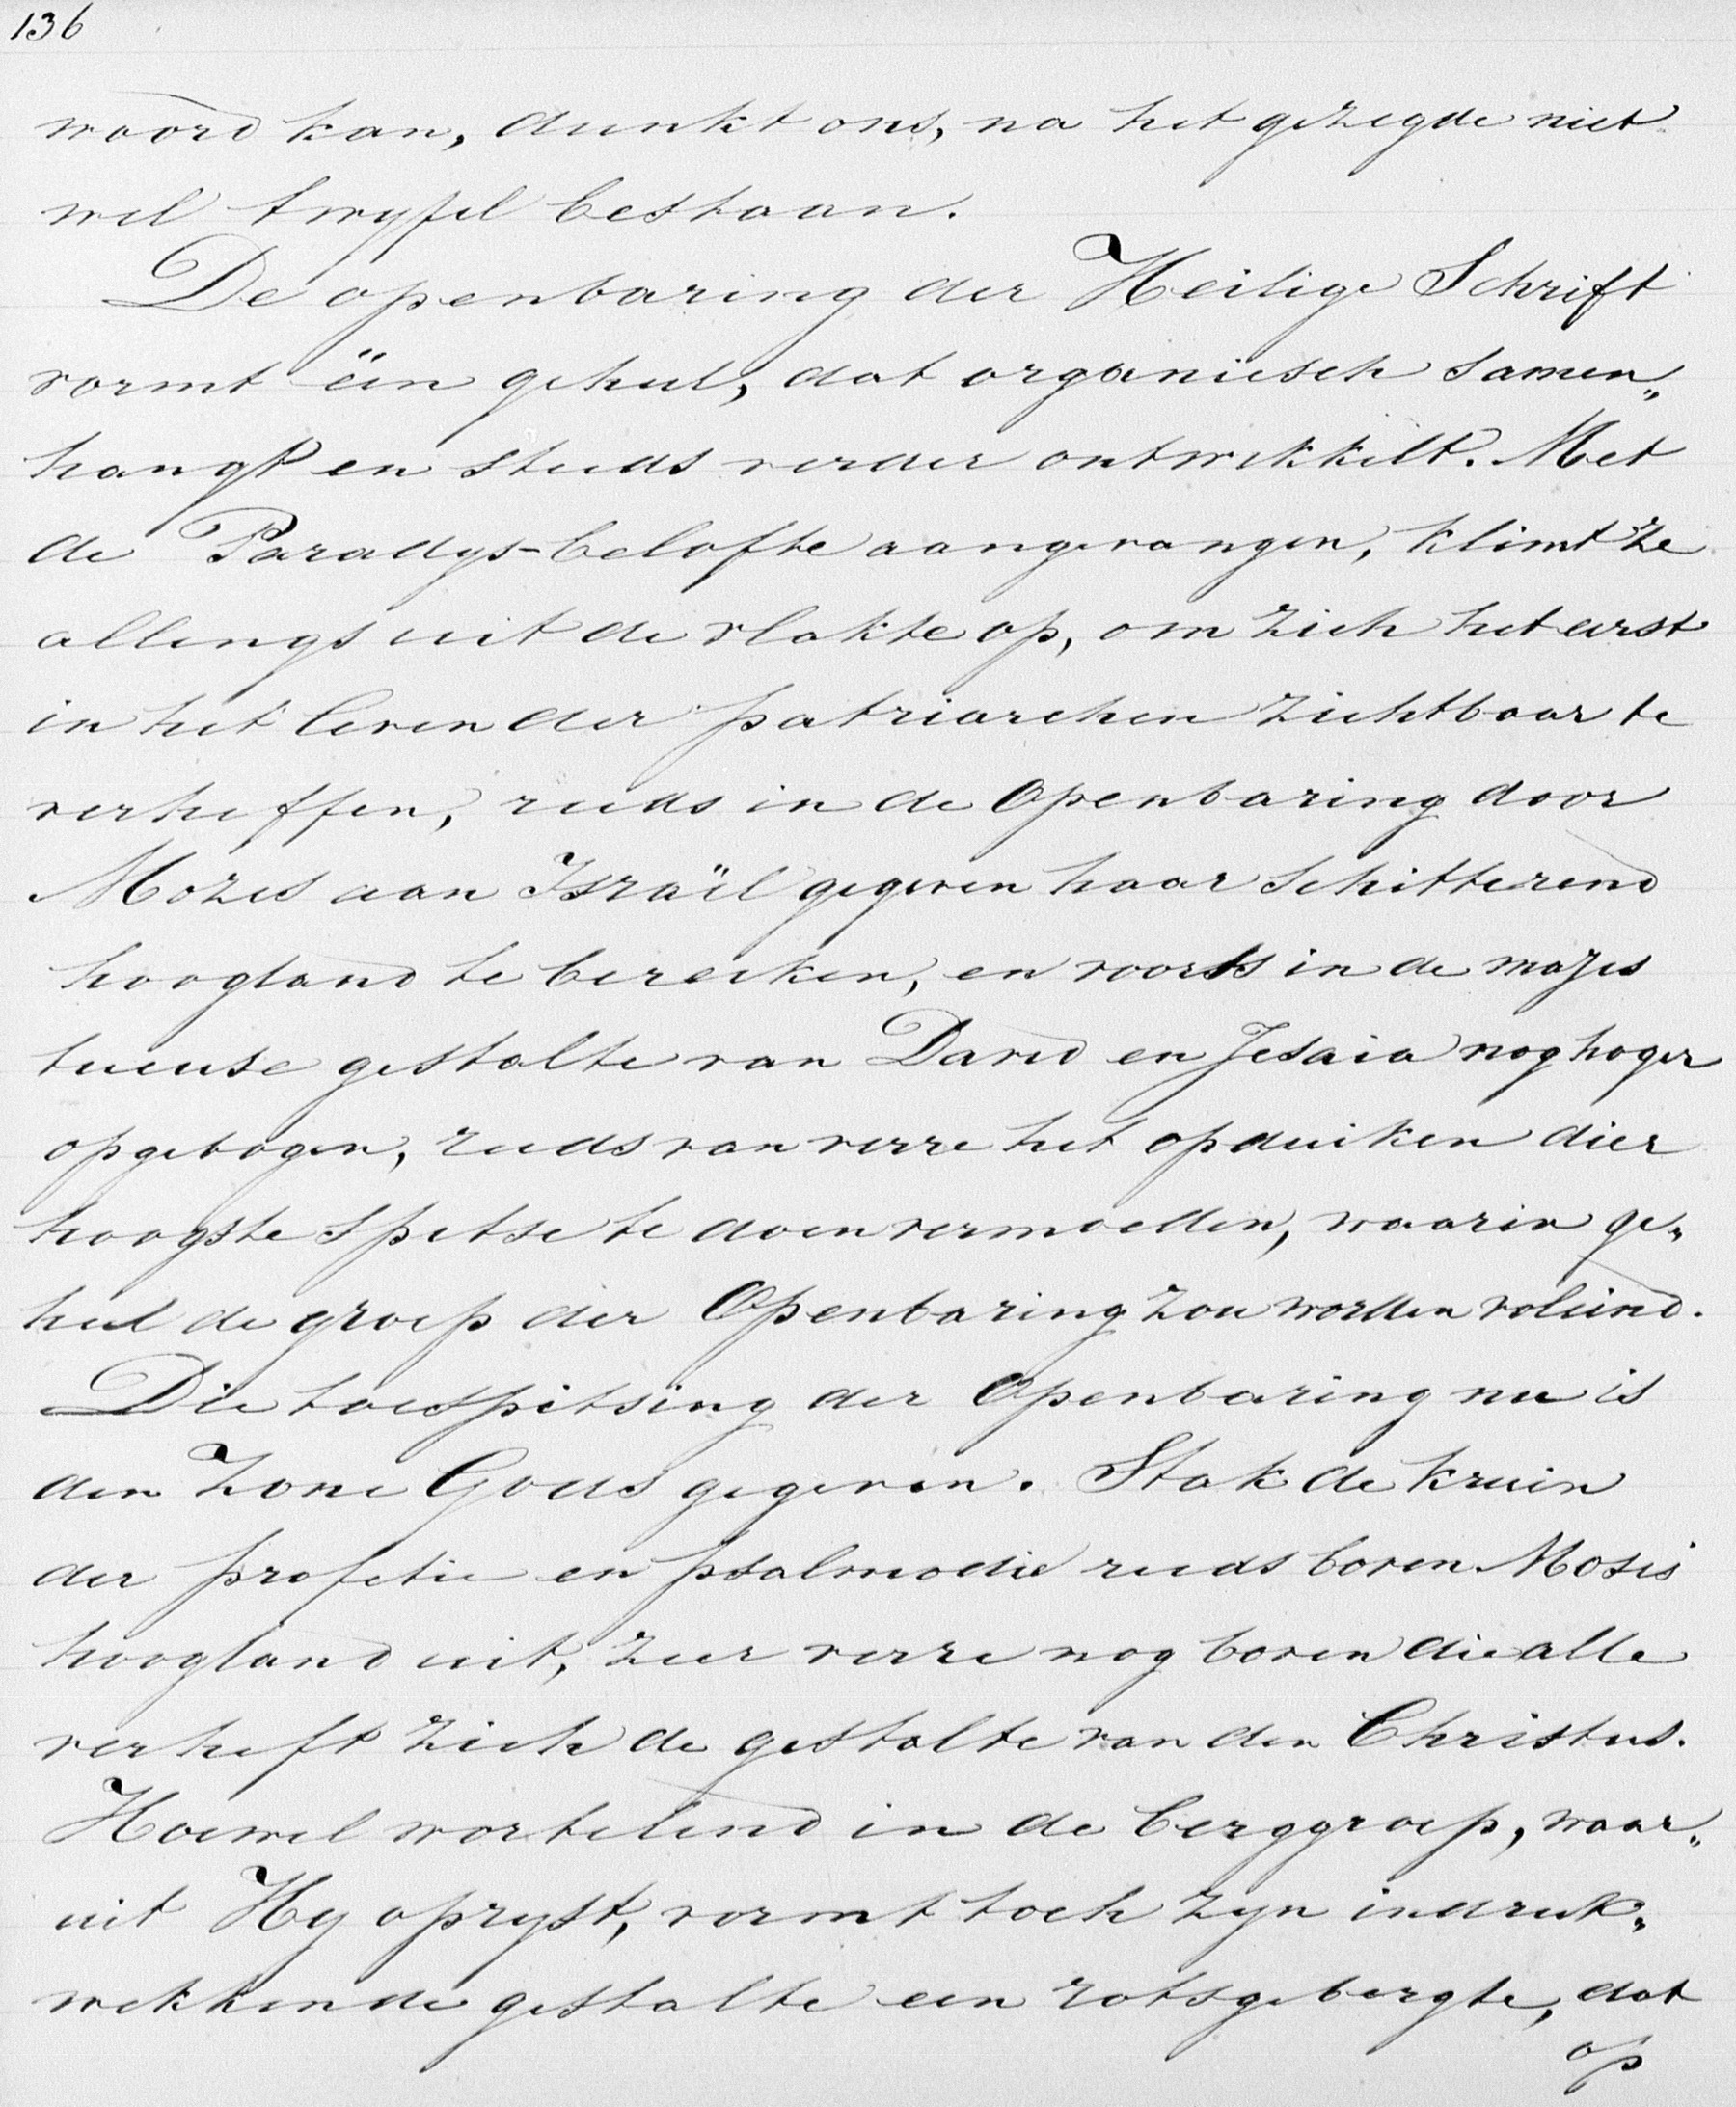 136
woord kan, dunkt ons, na het gezegde niet
wel twyfel bestaan.
De openbaring der Heilige Schrift
vormt één geheel, dat organiesch samen„
hangt en steeds verder ontwikkelt. Met
de Paradys-belofte aangevangen, klimt ze
allengs uit de vlakte op, om zich het eerst
in het leven der patriarchen zichtbaar te
verheffen, reeds in de Openbaring door
Mozes aan Israël gegeven haar schitterend
hoogland te bereiken, en voorts in de majes
tueuse gestalte van David en Jesaia nog hoger
opgebogen, reeds van verre het opduiken dier
hoogste spitse te doen vermoeden, waarin ge„
heel de groep der Openbaring zou worden voleind.
Die toespitsing der Openbaring nu is
den Zone Gods gegeven. Stak de kruin
der profetie en psalmodie reeds boven Mosis
hoogland uit, zeer verre nog boven die alle
verheft zich de gestalte van den Christus.
Hoewel wortelend in de berggroep, waar„
uit Hy opryst, vormt toch zyn indruk„
wekkende gestalte een rotsgebergte, dat
op